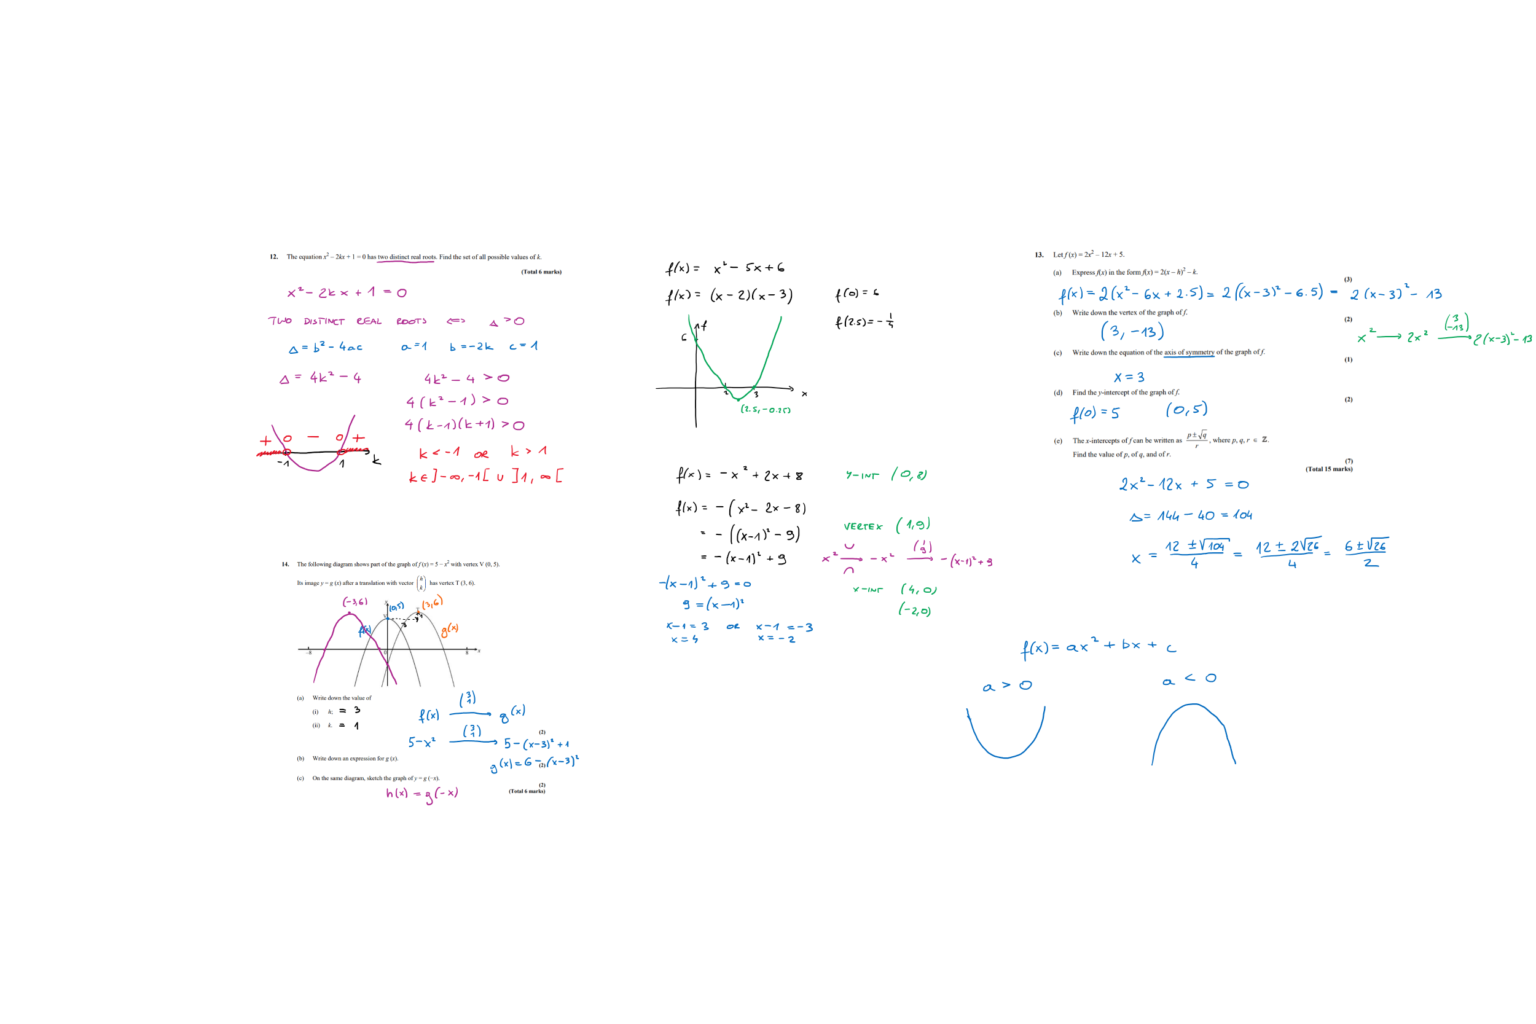 12. The equation x² – 2kx + 1 = 0 has two distinct real roots. Find the set of all possible values of k.
(Total 6 marks)
x² – 2kx + 1 = 0
TWO DISTINCT REAL ROOTS ⟺ Δ > 0
Δ = b² – 4ac a = 1 b = –2k c = 1
Δ = 4k² – 4 4k² – 4 > 0
4(k² – 1) > 0
4(k–1)(k+1) > 0
+ 0 – 0 +
–1 1 k
k < –1 or k > 1
k ∈ ]–∞, –1[ ∪ ]1, ∞[
14. The following diagram shows part of the graph of f (x) = 5 – x² with vertex V (0, 5).
Its image y = g (x) after a translation with vector (h k) has vertex T (3, 6).
(–3,6) (0,5) (3,6)
f(x) g(x)
–8 0 8 x
(a) Write down the value of
(i) h; = 3
(ii) k. = 1
f(x) (3 1) ⟶ g(x)
(2)
5 – x² (3 1) ⟶ 5 – (x–3)² + 1
(b) Write down an expression for g (x).
g(x) = 6 – (x–3)²
(2)
(c) On the same diagram, sketch the graph of y = g (–x).
(2)
(Total 6 marks)
h(x) = g(–x)
f(x) = x² – 5x + 6
f(x) = (x – 2)(x – 3) f(0) = 6
f(2.5) = –1/4
6 f
2 3 x
(2.5, –0.25)
f(x) = –x² + 2x + 8 Y-INT (0, 8)
f(x) = –(x² – 2x – 8)
= –((x–1)² – 9) VERTEX (1,9)
= –(x–1)² + 9 x² ⟶ –x² (1 9) ⟶ –(x–1)² + 9
–(x–1)² + 9 = 0 X-INT (4, 0)
9 = (x–1)² (–2,0)
x–1 = 3 or x–1 = –3
x = 4 x = –2
13. Let f (x) = 2x² – 12x + 5.
(a) Express f(x) in the form f(x) = 2(x – h)² – k.
(3)
f(x) = 2(x² – 6x + 2.5) = 2((x–3)² – 6.5) = 2(x–3)² – 13
(b) Write down the vertex of the graph of f.
(2)
(3, –13)
x² ⟶ 2x² (3 –13) ⟶ 2(x–3)² – 13
(c) Write down the equation of the axis of symmetry of the graph of f.
(1)
x = 3
(d) Find the y-intercept of the graph of f.
(2)
f(0) = 5 (0,5)
(e) The x-intercepts of f can be written as (p ± √q)/r, where p, q, r ∈ ℤ.
Find the value of p, of q, and of r.
(7)
(Total 15 marks)
2x² – 12x + 5 = 0
Δ = 144 – 40 = 104
x = (12 ± √104)/4 = (12 ± 2√26)/4 = (6 ± √26)/2
f(x) = ax² + bx + c
a > 0 a < 0